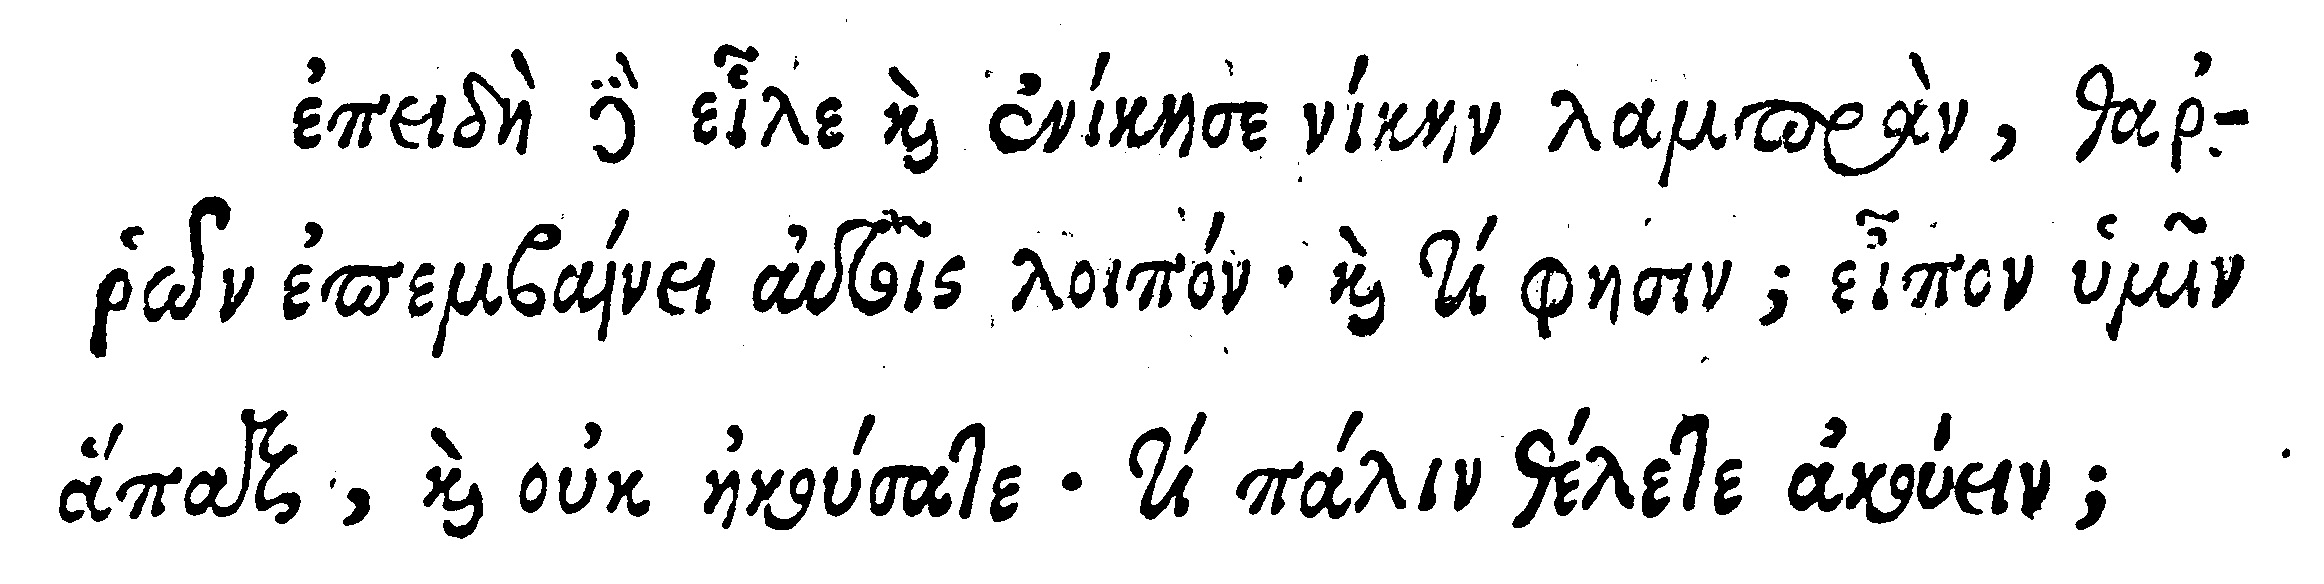 ἐπειδὴ δὲ εἷλε καὶ ἐνίκησε νίκην λαμπρὰν, θαῤ-
ῥῶν ἐπεμβαίνει αὐτοῖς λοιπόν· καὶ τί φησιν; εἶπον ὑμῖν
ἅπαξ, καὶ οὐκ ἠκούσατε· τί πάλιν θέλετε ἀκούειν;